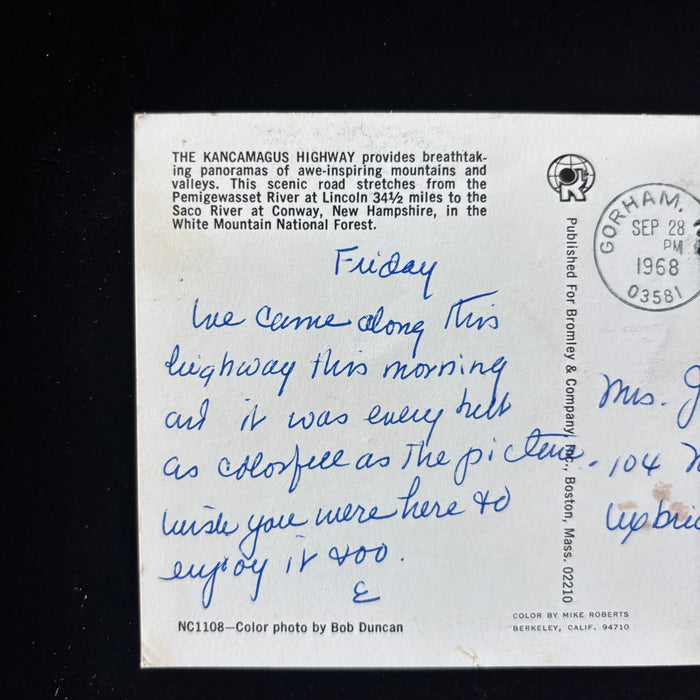 THE KANCAMAGUS HIGHWAY provides breathtak-
ing panoramas of awe-inspiring mountains and
valleys. This scenic road stretches from the
Pemigewasset River at Lincoln 34½ miles to the
Saco River at Conway, New Hampshire, in the
White Mountain National Forest.
Friday
We came along this
highway this morning
and it was every bit
as colorful as the picture.
Wish you were here to
enjoy it too.
E
NC1108—Color photo by Bob Duncan
Published For Bromley & Company, Inc., Boston, Mass. 02210
COLOR BY MIKE ROBERTS
BERKELEY, CALIF. 94710
GORHAM,
SEP 28
PM
1968
03581
Mrs. J
104
Uxbri